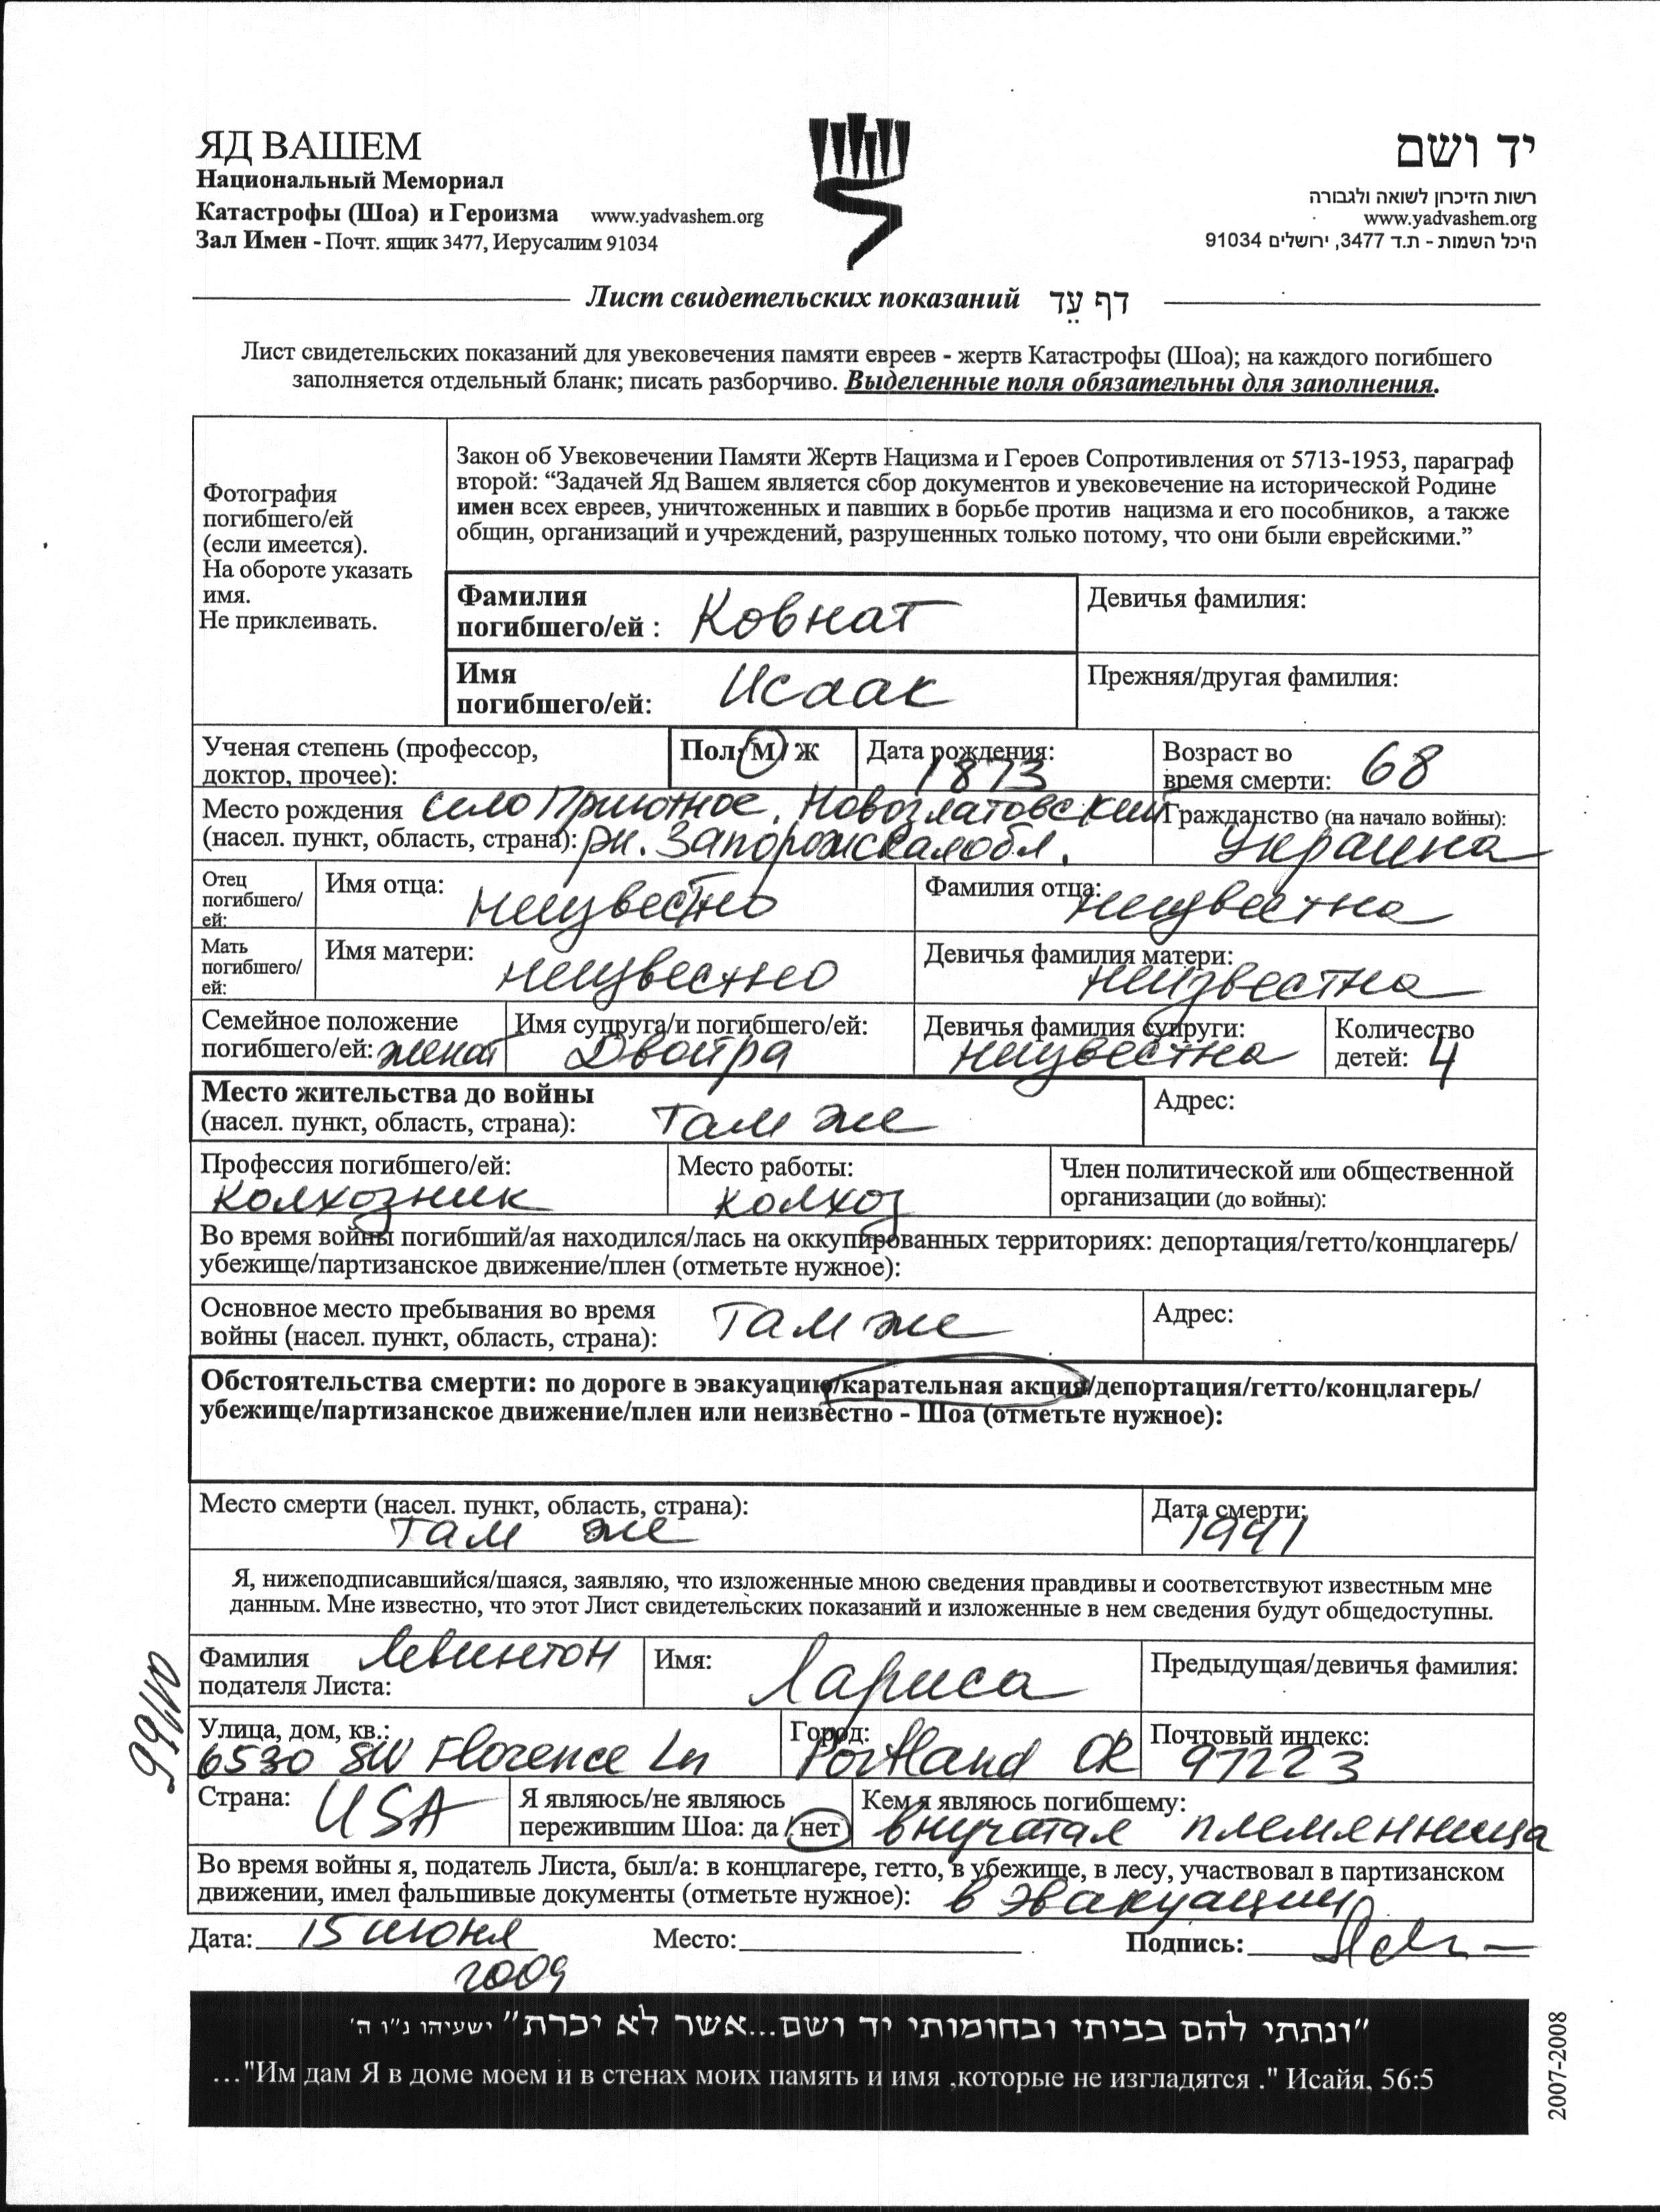 ЯД ВАШЕМ
Национальный Мемориал
Катастрофы (Шоа) и Героизма www.yadvashem.org
Зал Имен - Почт. ящик 3477, Иерусалим 91034
יד ושם
רשות הזיכרון לשואה ולגבורה
www.yadvashem.org
היכל השמות - ת.ד 3477, ירושלים 91034
Лист свидетельских показаний דף עֵד
Лист свидетельских показаний для увековечения памяти евреев - жертв Катастрофы (Шоа); на каждого погибшего
заполняется отдельный бланк; писать разборчиво. Выделенные поля обязательны для заполнения.
Фотография
погибшего/ей
(если имеется).
На обороте указать
имя.
Не приклеивать.
Закон об Увековечении Памяти Жертв Нацизма и Героев Сопротивления от 5713-1953, параграф
второй: “Задачей Яд Вашем является сбор документов и увековечение на исторической Родине
имен всех евреев, уничтоженных и павших в борьбе против нацизма и его пособников, а также
общин, организаций и учреждений, разрушенных только потому, что они были еврейскими.”
Фамилия
погибшего/ей : Ковнат
Девичья фамилия:
Имя
погибшего/ей: Исаак
Прежняя/другая фамилия:
Ученая степень (профессор,
доктор, прочее):
Пол: М / Ж
Дата рождения:
1873
Возраст во
время смерти: 68
Место рождения село Приютное, Новозлатовский
(насел. пункт, область, страна): рн. Запорожская обл.
Гражданство (на начало войны):
Украина
Отец
погибшего/
ей:
Имя отца: неизвестно
Фамилия отца: неизвестна
Мать
погибшего/
ей:
Имя матери: неизвестно
Девичья фамилия матери:
неизвестна
Семейное положение
погибшего/ей: женат
Имя супруга/и погибшего/ей:
Двойра
Девичья фамилия супруги:
неизвестна
Количество
детей: 4
Место жительства до войны
(насел. пункт, область, страна): там же
Адрес:
Профессия погибшего/ей:
колхозник
Место работы:
колхоз
Член политической или общественной
организации (до войны):
Во время войны погибший/ая находился/лась на оккупированных территориях: депортация/гетто/концлагерь/
убежище/партизанское движение/плен (отметьте нужное):
Основное место пребывания во время
войны (насел. пункт, область, страна): там же
Адрес:
Обстоятельства смерти: по дороге в эвакуацию/карательная акция/депортация/гетто/концлагерь/
убежище/партизанское движение/плен или неизвестно - Шоа (отметьте нужное):
Место смерти (насел. пункт, область, страна):
там же
Дата смерти:
1941
Я, нижеподписавшийся/шаяся, заявляю, что изложенные мною сведения правдивы и соответствуют известным мне
данным. Мне известно, что этот Лист свидетельских показаний и изложенные в нем сведения будут общедоступны.
Фамилия Левинтон
подателя Листа:
Имя: Лариса
Предыдущая/девичья фамилия:
Улица, дом, кв.:
6530 SW Florence Ln
Город:
Portland OR
Почтовый индекс:
97223
Страна: USA
Я являюсь/не являюсь
пережившим Шоа: да / нет
Кем я являюсь погибшему:
внучатая племянница
Во время войны я, податель Листа, был/а: в концлагере, гетто, в убежище, в лесу, участвовал в партизанском
движении, имел фальшивые документы (отметьте нужное): в эвакуации
Дата: 15 июня
2009
Место:
Подпись:
”ונתתי להם בביתי ובחומותי יד ושם...אשר לא יכרת” ישעיהו נ”ו ה'
..."Им дам Я в доме моем и в стенах моих память и имя ,которые не изгладятся ." Исайя, 56:5
2007-2008